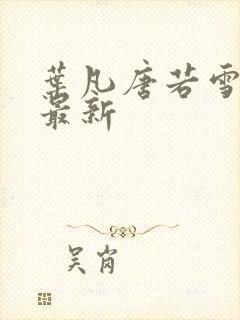 葉凡唐若雪
最新
吴岗